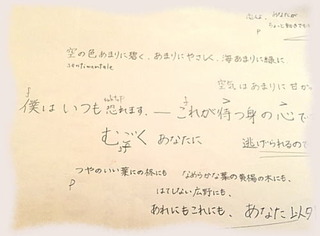 空の色あまりに碧く、あまりにやさしく、海あまりに緑に
sentimentale
空気はあまりに甘か
f
僕はいつも恐れます。― これが待つ身の心で
むごく あなたに 逃げられるので
つやのいい葉の柊にも、 なめらかな葉の黄楊の木にも、
p
はてしない広野にも、
あれにもこれにも、 あなた以外